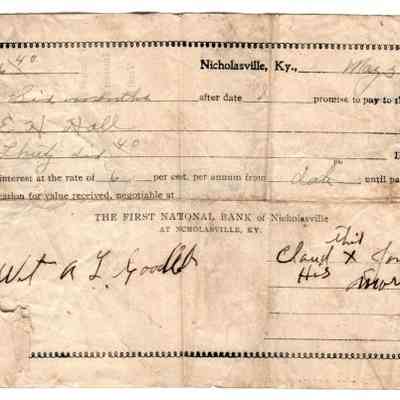 6 40 Nicholasville, Ky., May 3
Six months after date I promise to pay to th
E H Hall
Thirty and 40 D
interest at the rate of 6 per cent. per annum from date until pa
ration for value received, negotiable at
THE FIRST NATIONAL BANK of Nicholasville
AT NCHOLASVILLE, KY.
Wit A L Goodlet
Claud X
His